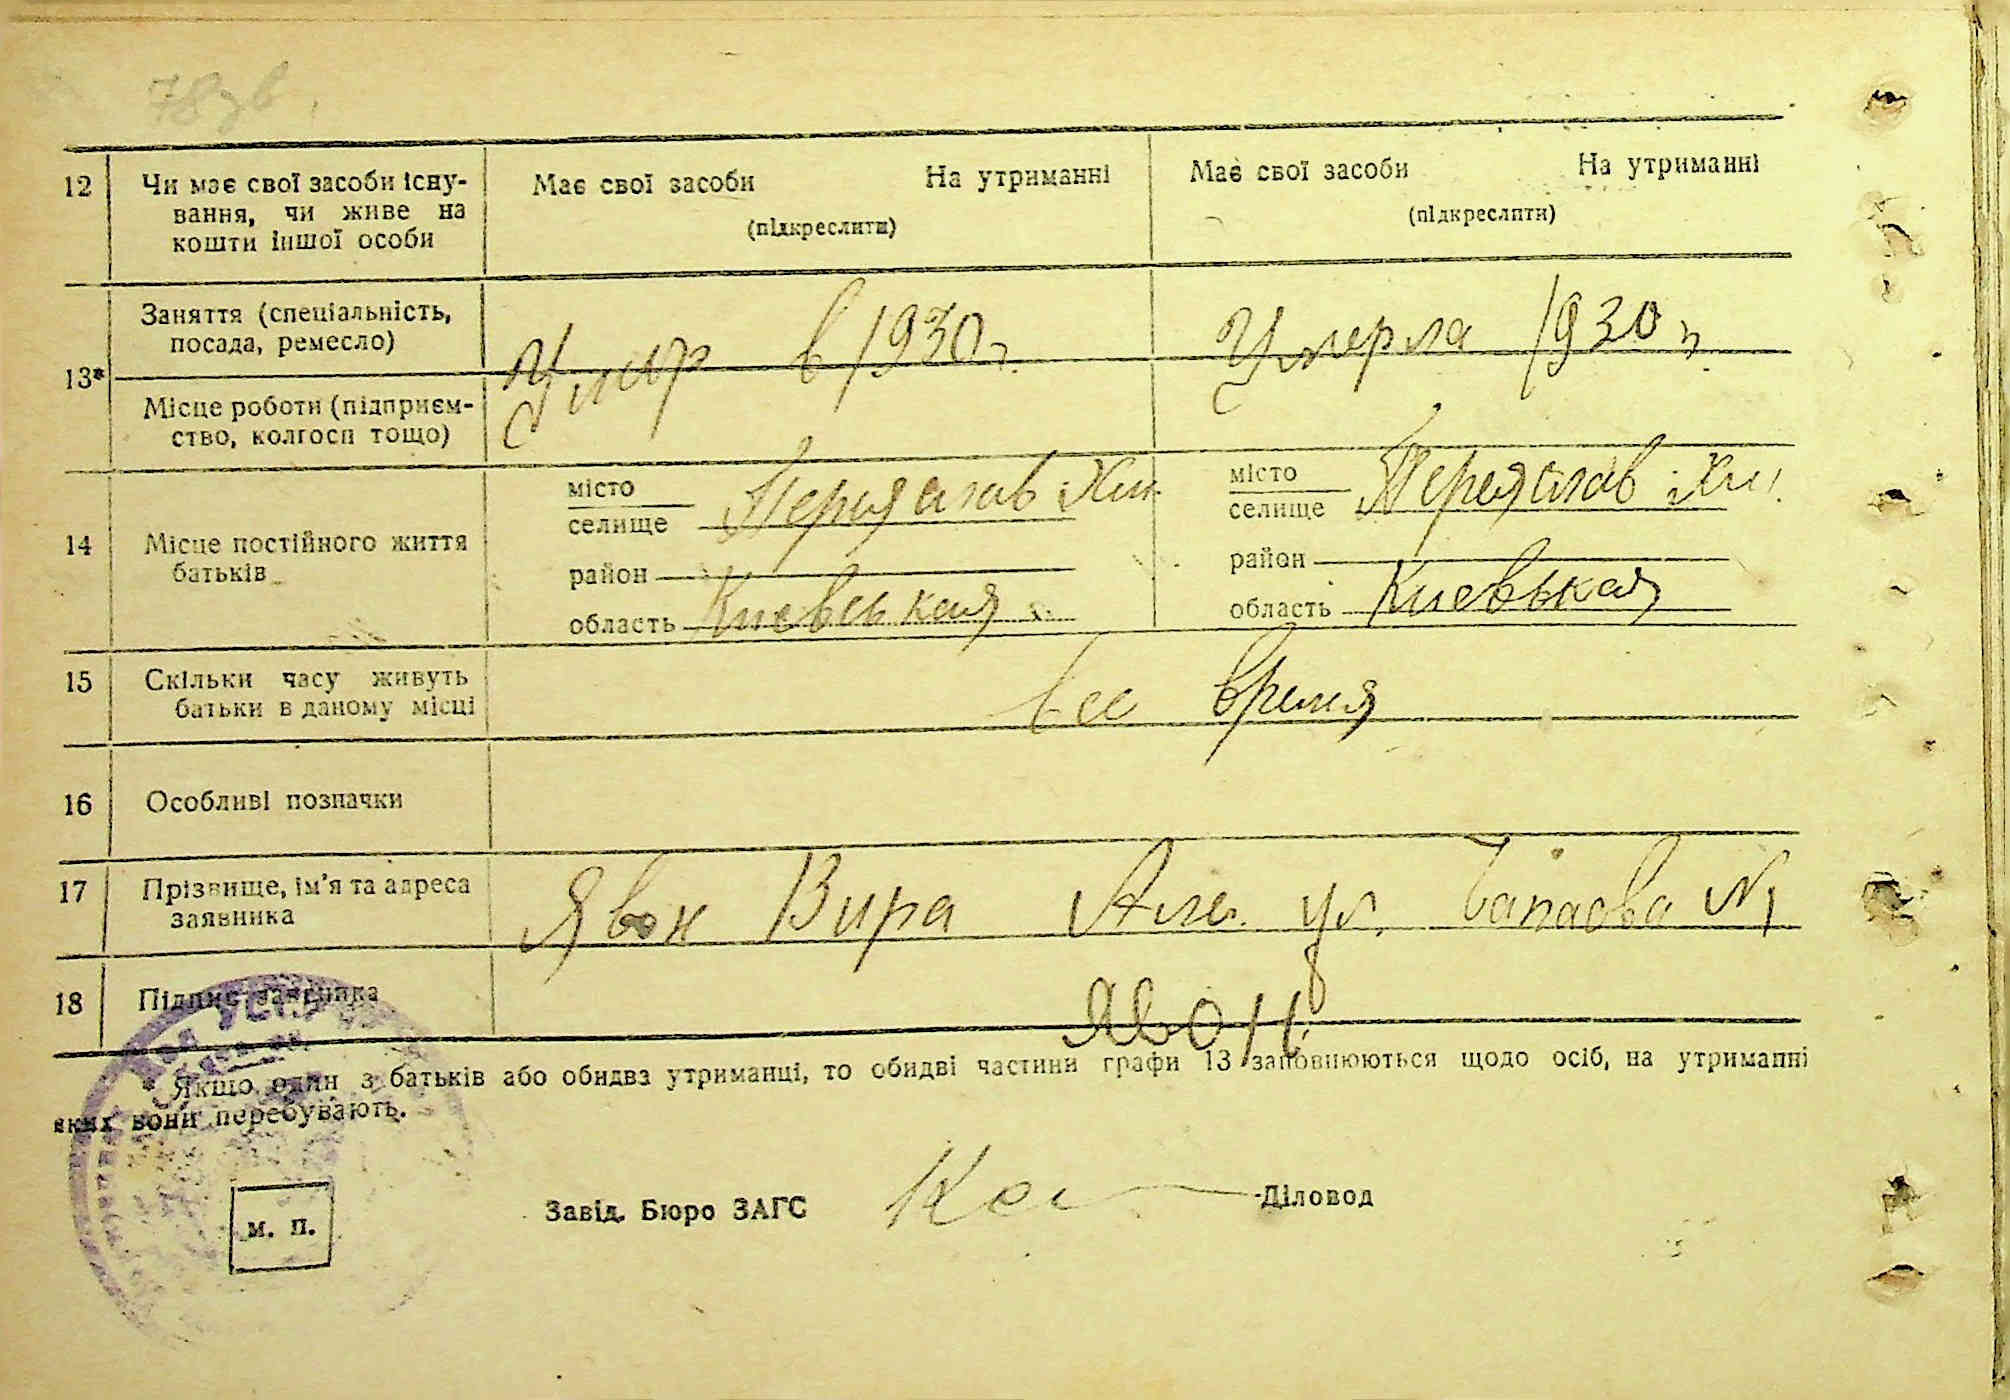 78 зв
12 Чи має свої засоби існу- Має свої засоби На утриманні Має свої засоби На утриманні
вання, чи живе на (підкреслити) (підкреслити)
кошти іншої особи
13* Заняття (спеціальність,
посада, ремесло) Умир в 1930 г. Умерла 1930 г.
Місце роботи (підприєм-
ство, колгосп тощо)
14 Місце постійного життя
батьків
місто Переяслав Хм. місто Переяслав Хм.
селище селище
район район
область Киевськая область Киевькая
15 Скільки часу живуть
батьки в даному місці все время
16 Особливі позначки
17 Прізвище, ім'я та адреса
заявника Явон Вира Але. ул. Чапаева №1
18 Підпис заявника Явон
* Якщо один з батьків або обидва утриманці, то обидві частини графи 13 заповнюються щодо осіб, на утриманні
яких вони перебувають.
м. п. Завід. Бюро ЗАГС Діловод